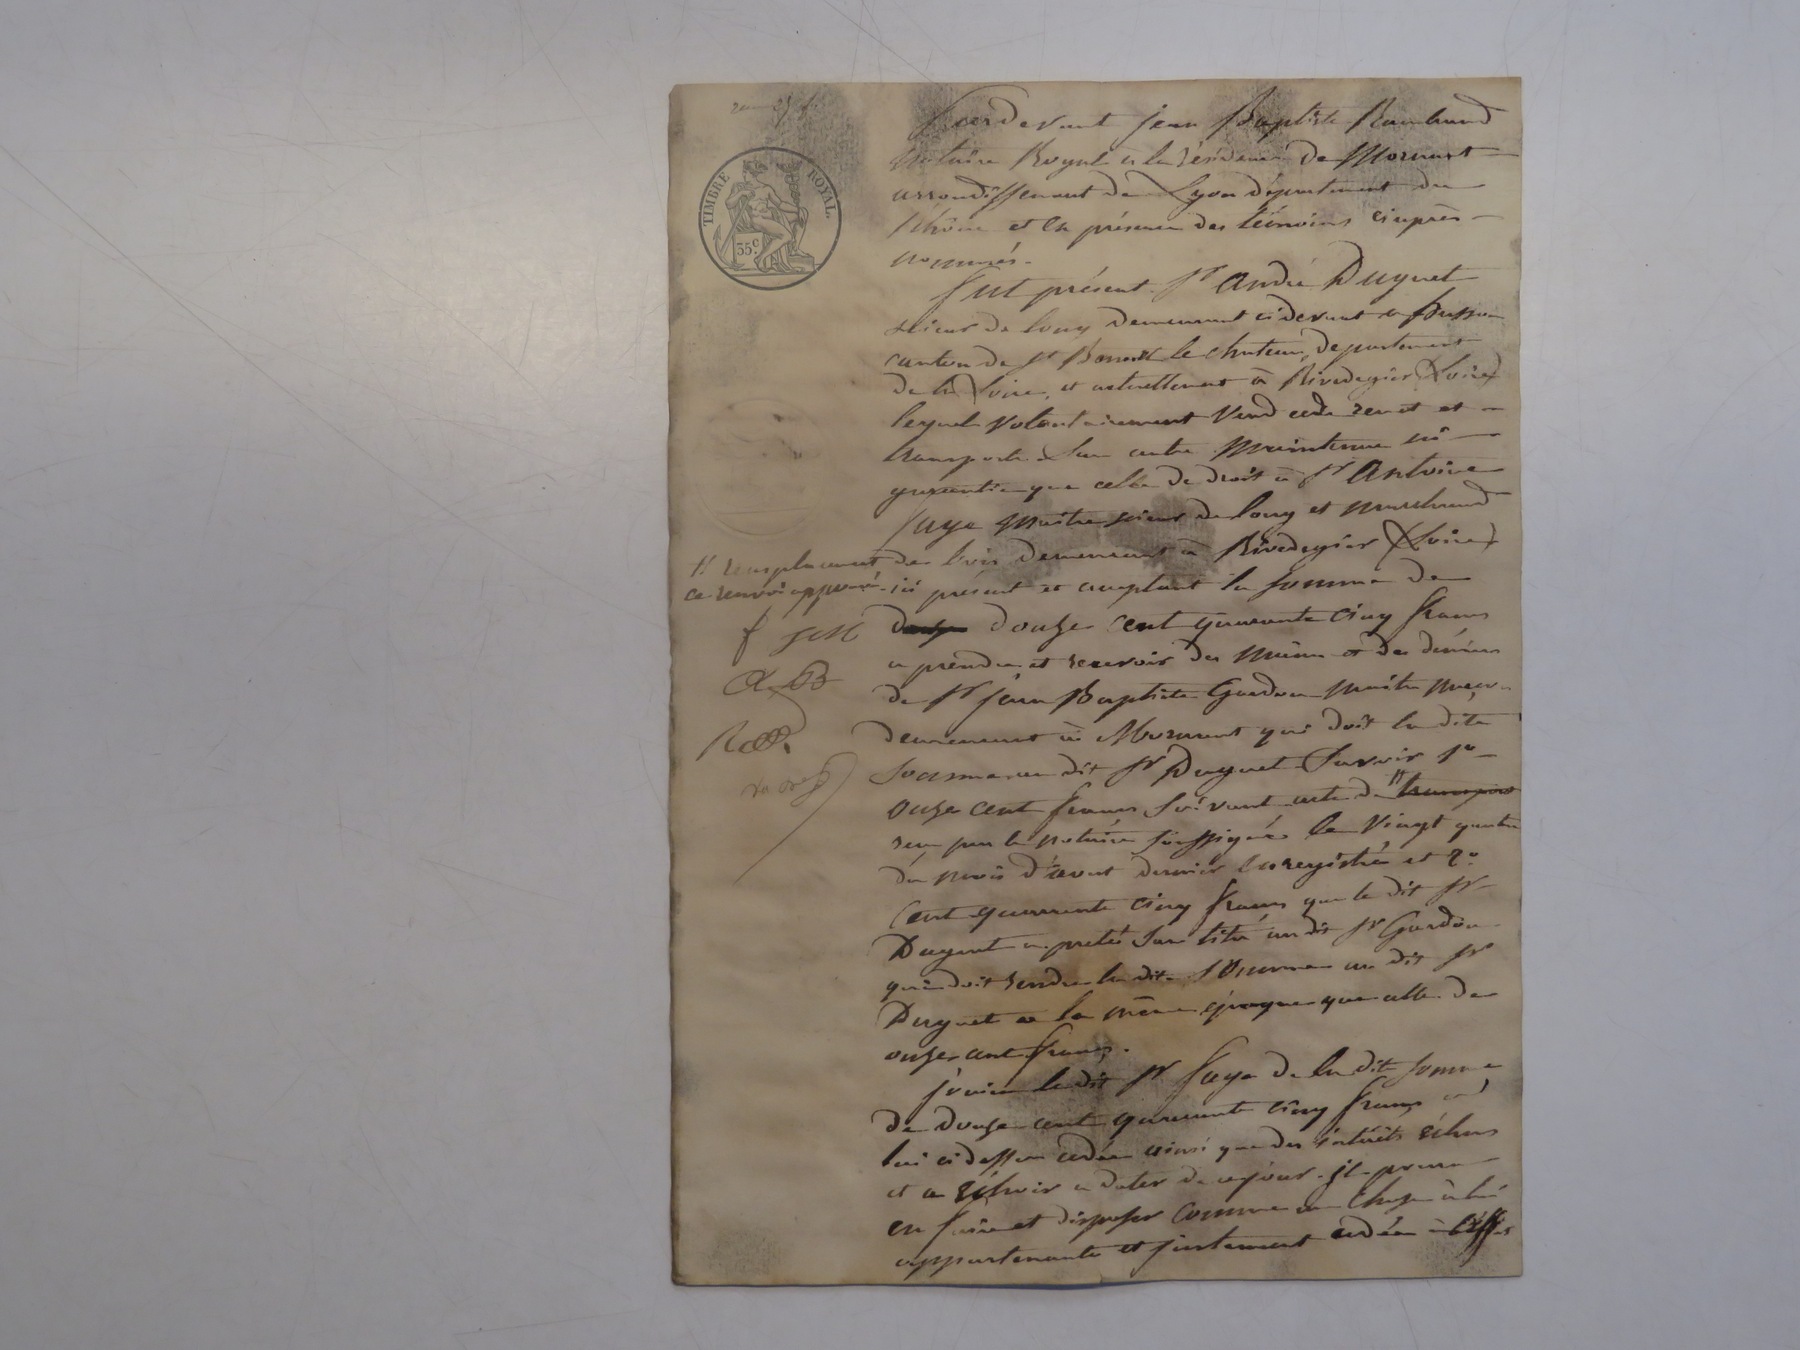 TIMBRE ROYAL.
35c.
Pardevant Jean Baptiste Rambaud
Notaire Royal à la résidence de Mornant
arrondissement de Lyon département du
Rhône et en présence des témoins ciaprès
nommés.
fut présent Sr André Duguet
scieur de long demeurant cidevant à
canton de St Bonnet le chateau, departement
de la Loire, et actuellement à Rivedegier (Loire)
lequel volontairement vend cede remet et
transporte Sans autre Maintenue ni
garantie que celle de droit à Sr Antoine
Faye Maitre scieur de long et Marchand
de bois demeurant à Rivedegier (Loire)
ici présent et acceptant la Somme de
douze Cent quarante cinq francs
a prendre et recevoir des Mains et des deniers
de Sr Jean Baptiste Gardon Maitre Maçon
demeurant à Mornant qui doit la dite
Somme au dit Sr Duguet Savoir 1o
onze cent francs Suivant acte de " transport
recu par le notaire Soussigné le Vingt quatre
du mois d'avout dernier Enregistré et 2o
Cent quarante cinq francs que le dit Sr
Duguet a preté Sans titre au dit Sr Gardon
qui doit rendre la dite Somme au dit Sr
Duguet a la même époque que celle de
onze cent francs.
Jouira le dit Sr Faye de la dite Somme
de douze cent quarante cinq francs
lui cidessus cedée ainsi que des intérêts échus
et a Echoir a dater de ce jour. il pourra
en faire et disposer Comme de Chose à lui
appartenante et justement cedée à l'effet
" remplacement
ce renvoi approuvé